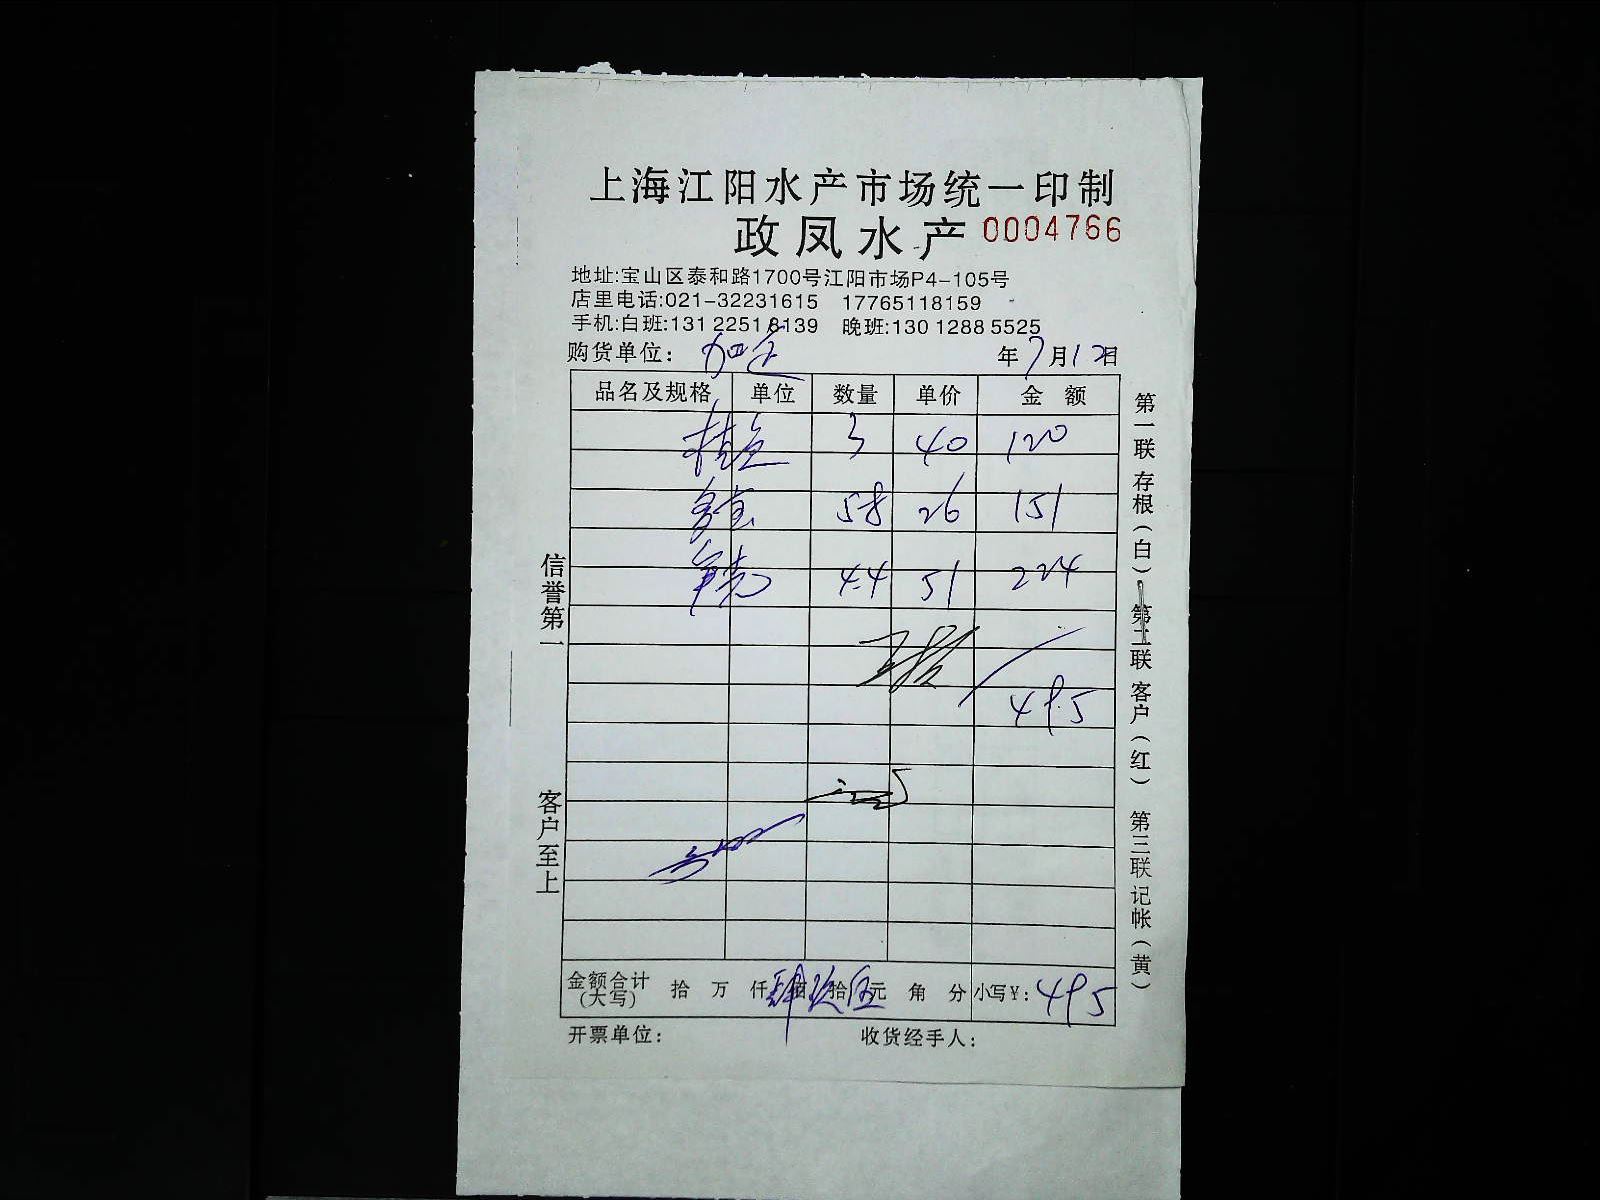 上海江阳水产市场统一印制
政凤水产 0004766
地址:宝山区泰和路1700号江阳市场P4-105号
店里电话:021-32231615 17765118159
手机:白班:131 2251 8139 晚班:130 1288 5525
购货单位: 年7月12日
品名及规格 单位 数量 单价 金额
3 40 120
58 26 151
4.4 51 224
495
金额合计(大写) 拾 万 仟肆佰玖拾伍元 角 分 小写¥:495
开票单位: 收货经手人:
信誉第一
客户至上
第一联存根(白) 第二联客户(红) 第三联记帐(黄)